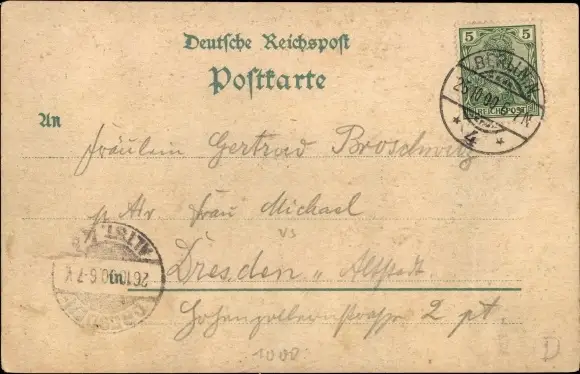 Deutsche Reichspost
Postkarte
5 5
REICHSPOST
BERLIN N
26.10.00. 6-7N
* 4 *
An
Fräulein Gertrud Broschwitz
p Adr Frau Michael
vs
in Dresden „ Altstadt.
ALTST.
26.10.00.6-7
DRESDEN
Hohenzollernstrasse 2 pt.
1008
D